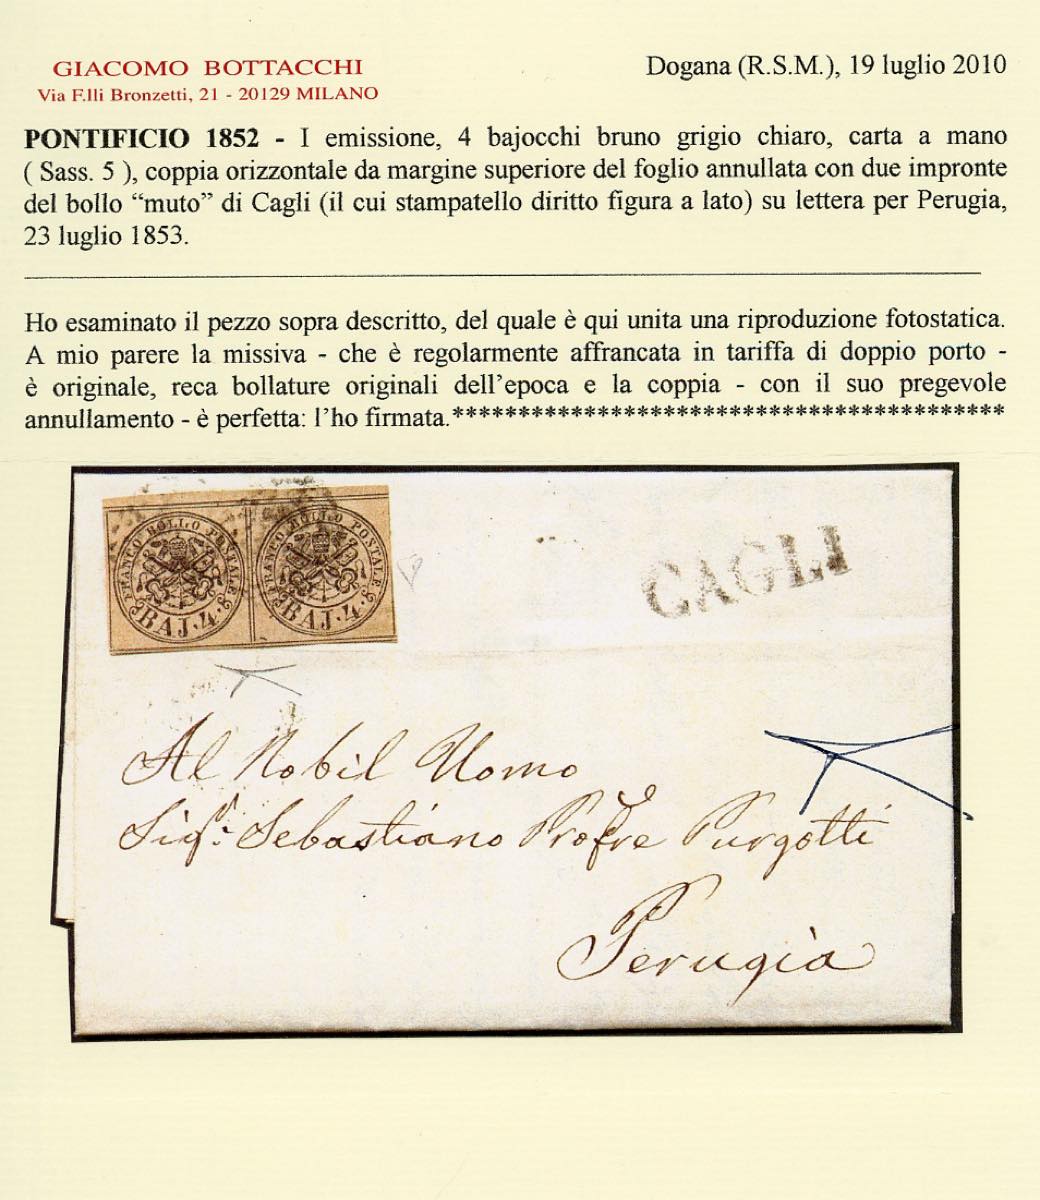 GIACOMO BOTTACCHI
Via F.lli Bronzetti, 21 - 20129 MILANO
Dogana (R.S.M.), 19 luglio 2010
PONTIFICIO 1852 - I emissione, 4 bajocchi bruno grigio chiaro, carta a mano
( Sass. 5 ), coppia orizzontale da margine superiore del foglio annullata con due impronte
del bollo “muto” di Cagli (il cui stampatello diritto figura a lato) su lettera per Perugia,
23 luglio 1853.
Ho esaminato il pezzo sopra descritto, del quale è qui unita una riproduzione fotostatica.
A mio parere la missiva - che è regolarmente affrancata in tariffa di doppio porto -
è originale, reca bollature originali dell’epoca e la coppia - con il suo pregevole
annullamento - è perfetta: l’ho firmata.******************************************
FRANCO BOLLO POSTALE
BAJ. 4.
FRANCO BOLLO POSTALE
BAJ. 4.
CAGLI
Al Nobil Uomo
Sigr: Sebastiano Profre Purgotti
Perugia